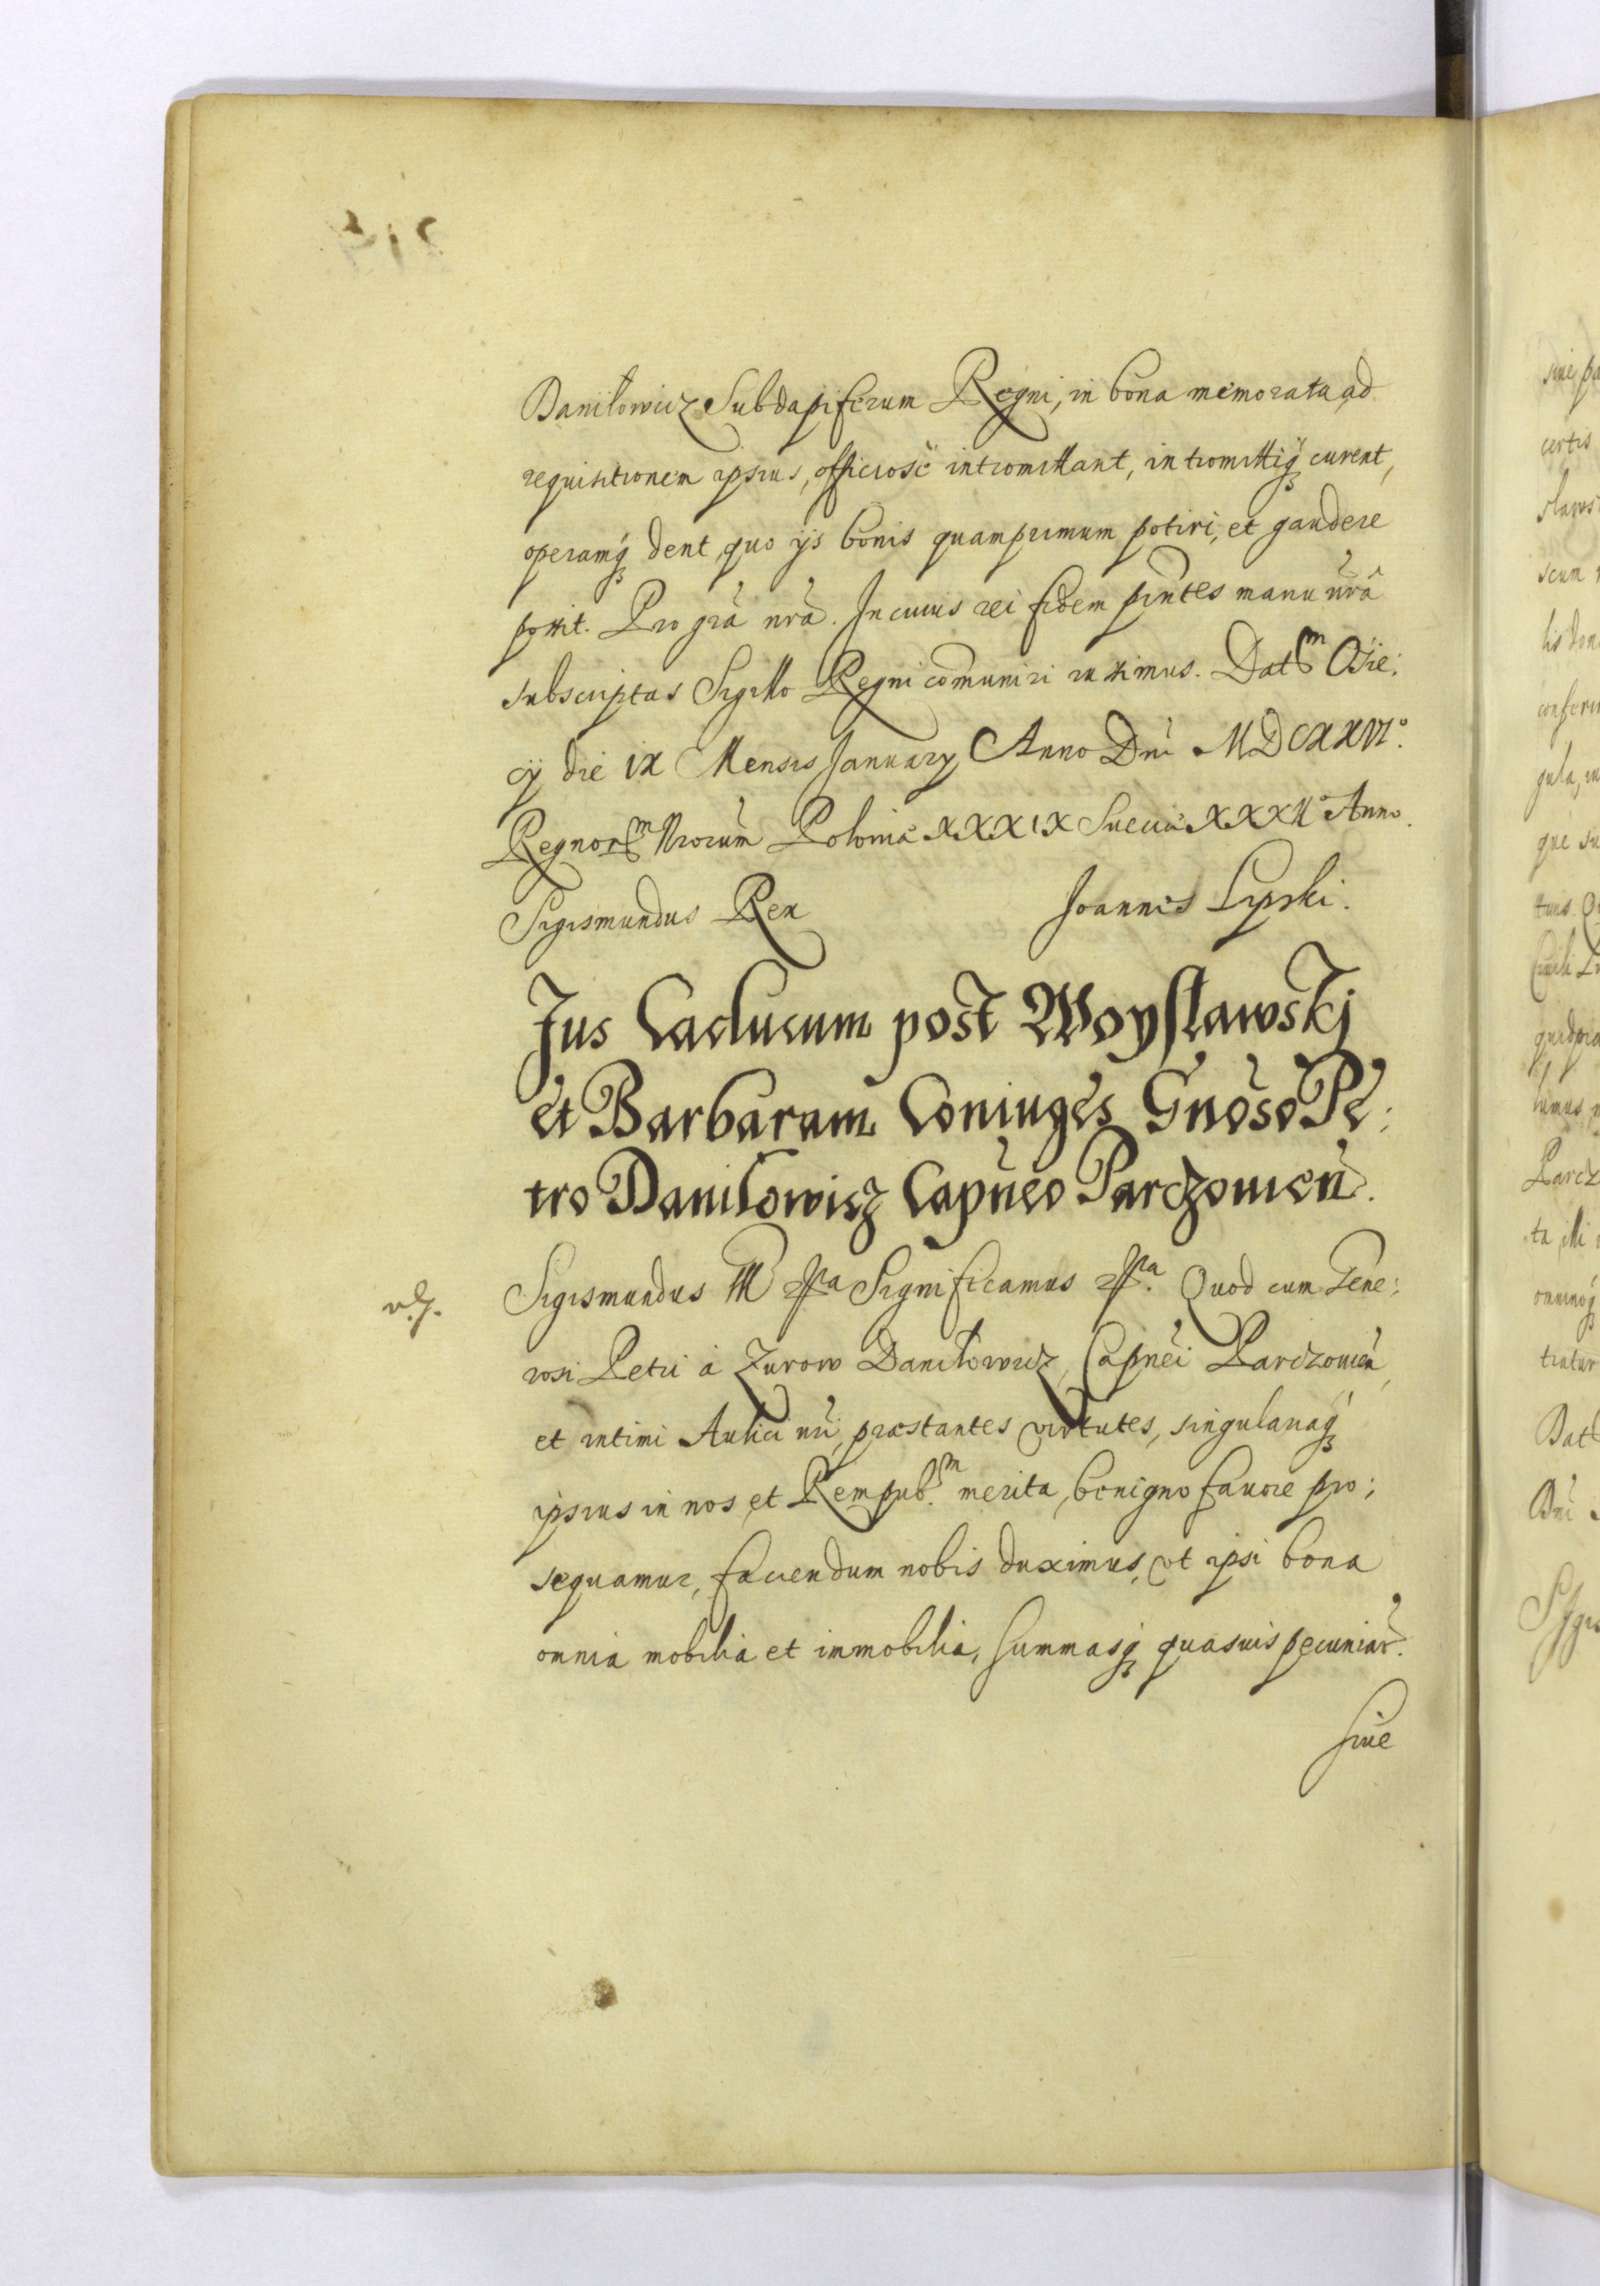 Daniłowicz Subdapiferum Regni, in bona memorata ad
requisitionem ipsius, officiosè intromittant, intromittiq́ꝫ curent,
operamq́ꝫ dent, quo ijs bonis quamprimum potiri, et gaudere
possit. Pro grã nrã. In cuius rei fidem pñtes manu nrâ
subscriptas Sigillo Regni comuniri iussimus. Datum Osie:
cij die IX Mensis January Anno Dni MDCXXVIº.
Regnorum Nrorum Poloniæ XXXIX Sueciæ XXXIIº Anno.
Sigismundus Rex Joannes Lipski.
Jus Caducum post Woysławskj
et Barbaram Coniuges Gnoso Pe:
tro Daniłowicz Capneo Parczouien.
Sigismundus III Significamus Quod cum Gene:
rosi Petri à Zurow Daniłowicz, Capnei Parczouien,
et intimi Aulici nri, præstantes virtutes, singulariaq́ꝫ
ipsius in nos et Rempub.m merita, benigno fauore pro:
sequamur, faciendum nobis duximus, vt ipsi bona
omnia mobilia et immobilia, summasq́ꝫ quasuis pecuniar.
siue